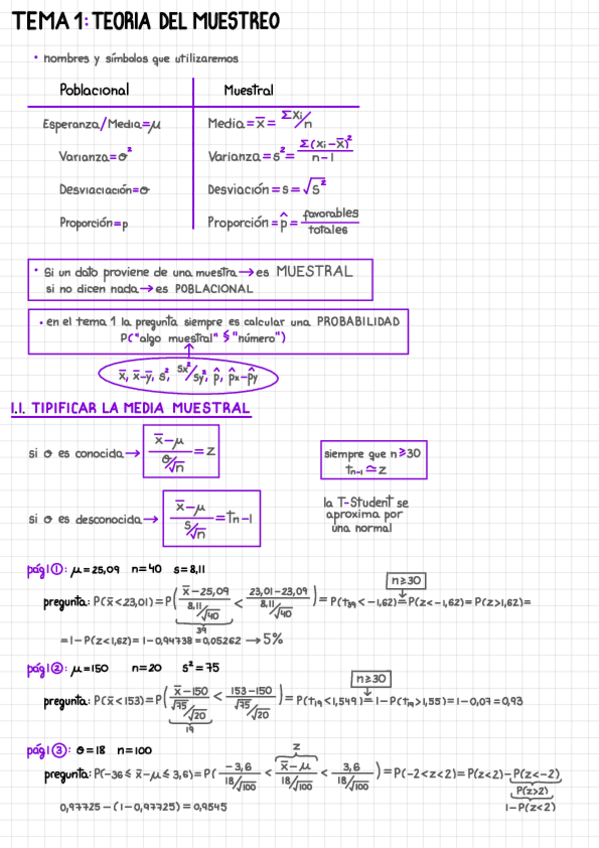 TEMA 1: TEORIA DEL MUESTREO
• nombres y símbolos que utilizaremos
Poblacional Muestral
Esperanza/Media=μ Media=x̄=Σxi/n
Varianza=σ² Varianza=s²=Σ(xi-x̄)²/n-1
Desviaciación=σ Desviación=s=√s²
Proporción=p Proporción=p̂=favorables/totales
• Si un dato proviene de una muestra→es MUESTRAL
si no dicen nada→es POBLACIONAL
• en el tema 1 la pregunta siempre es calcular una PROBABILIDAD
P("algo muestral" ≶ "número")
x̄, x̄-ȳ, s², sx²/sy², p̂, p̂x-p̂y
1.1. TIPIFICAR LA MEDIA MUESTRAL
si σ es conocida→ x̄-μ / σ/√n = z
siempre que n≥30
tn-1≃z
si σ es desconocida→ x̄-μ / s/√n = tn-1
la T-Student se
aproxima por
una normal
pág1①: μ=25,09 n=40 s=8,11
n≥30
pregunta: P(x̄<23,01)=P( x̄-25,09 / 8,11/√40 < 23,01-23,09 / 8,11/√40 )=P(t39<-1,62)=P(z<-1,62)=P(z>1,62)=
39
=1-P(z<1,62)=1-0,94738=0,05262→5%
pág1②: μ=150 n=20 s²=75
n≥30
pregunta: P(x̄<153)=P( x̄-150 / √75/√20 < 153-150 / √75/√20 )=P(t19<1,549)=1-P(t19>1,55)=1-0,07=0,93
19
pág1③: σ=18 n=100
z
pregunta: P(-36≤x̄-μ≤3,6)=P( -3,6 / 18/√100 < x̄-μ / 18/√100 < 3,6 / 18/√100 )=P(-2<z<2)=P(z<2)-P(z<-2)
P(z>2)
0,97725-(1-0,97725)=0,9545 1-P(z<2)